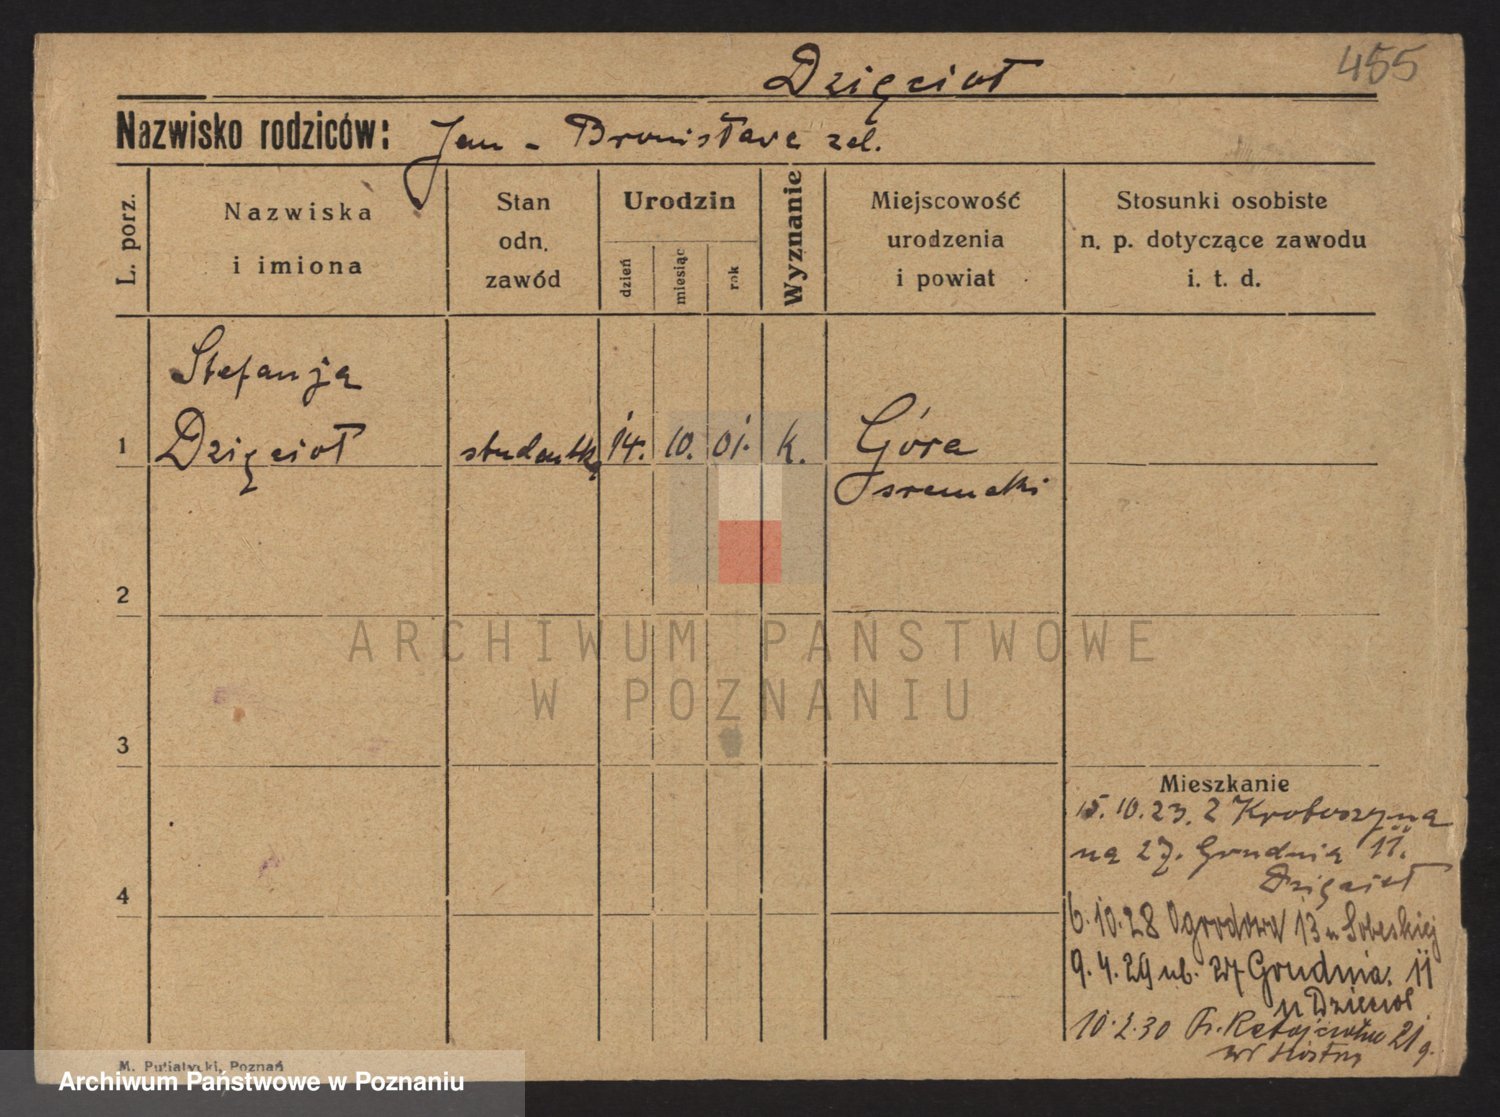 455
Dzięcioł
Nazwisko rodziców: Jan - Bronisława zd.
L. porz.
Nazwiska
i imiona
Stan
odn.
zawód
Urodzin
dzień
miesiąc
rok
Wyznanie
Miejscowość
urodzenia
i powiat
Stosunki osobiste
n. p. dotyczące zawodu
i. t. d.
Stefanja
1 Dzięcioł studentka 14. 10. 01. k. Góra
śremski
2
ARCHIWUM PAŃSTWOWE
W POZNANIU
3
Mieszkanie
15.10.23. z Krotoszyna
na 27. Grudnia 11.
Dzięcioł
4
6.10.28 Ogrodowa 13 u Sobeskiej
9.4.29 ub. 27 Grudnia. 11
u Dzięcioł.
10.2.30 21
M. Putiatycki, Poznań
Archiwum Państwowe w Poznaniu